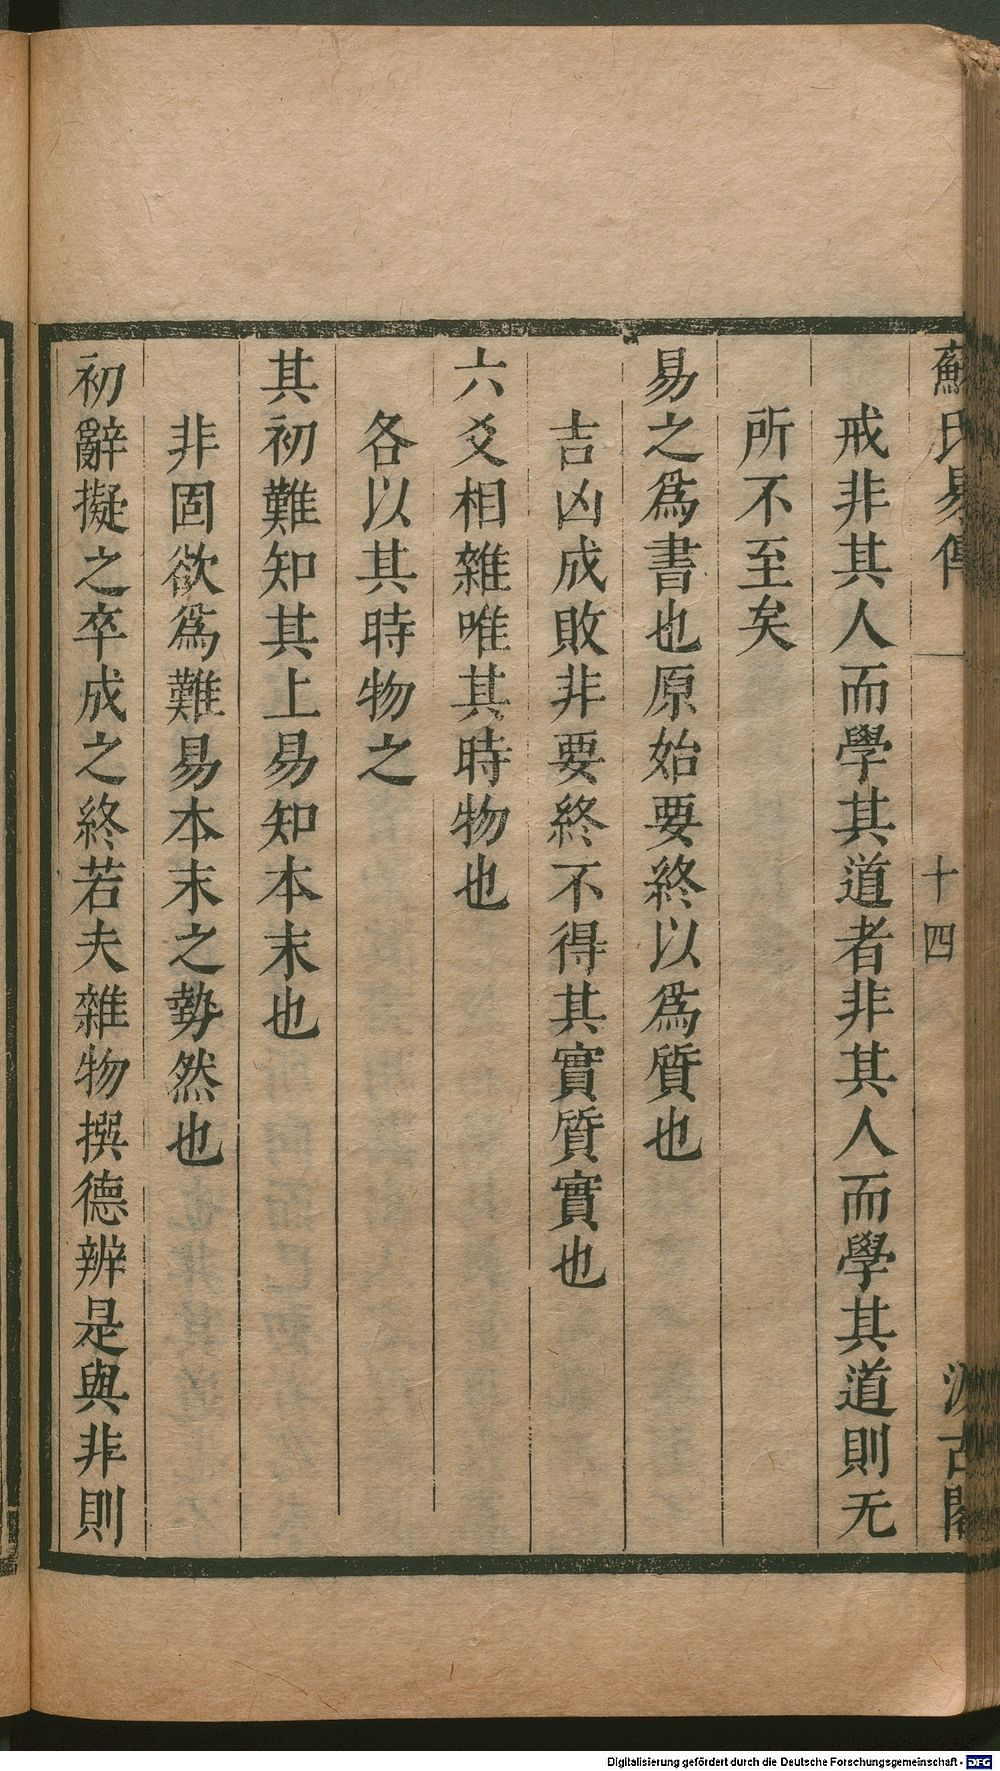 蘇氏易傳 十四 汲古閣
戒非其人而學其道者非其人而學其道則无
所不至矣
易之爲書也原始要終以爲質也
吉凶成敗非要終不得其實質實也
六爻相雜唯其時物也
各以其時物之
其初難知其上易知本末也
非固欲爲難易本末之勢然也
初辭擬之卒成之終若夫雜物撰德辨是與非則
Digitalisierung gefördert durch die Deutsche Forschungsgemeinschaft - DFG